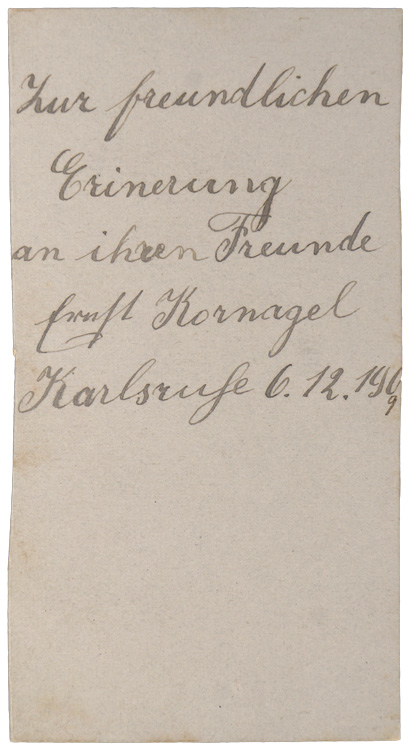 Zur freundlichen
Erinerung
an ihren Freunde
Ernst Kornagel
Karlsruhe 6. 12. 19